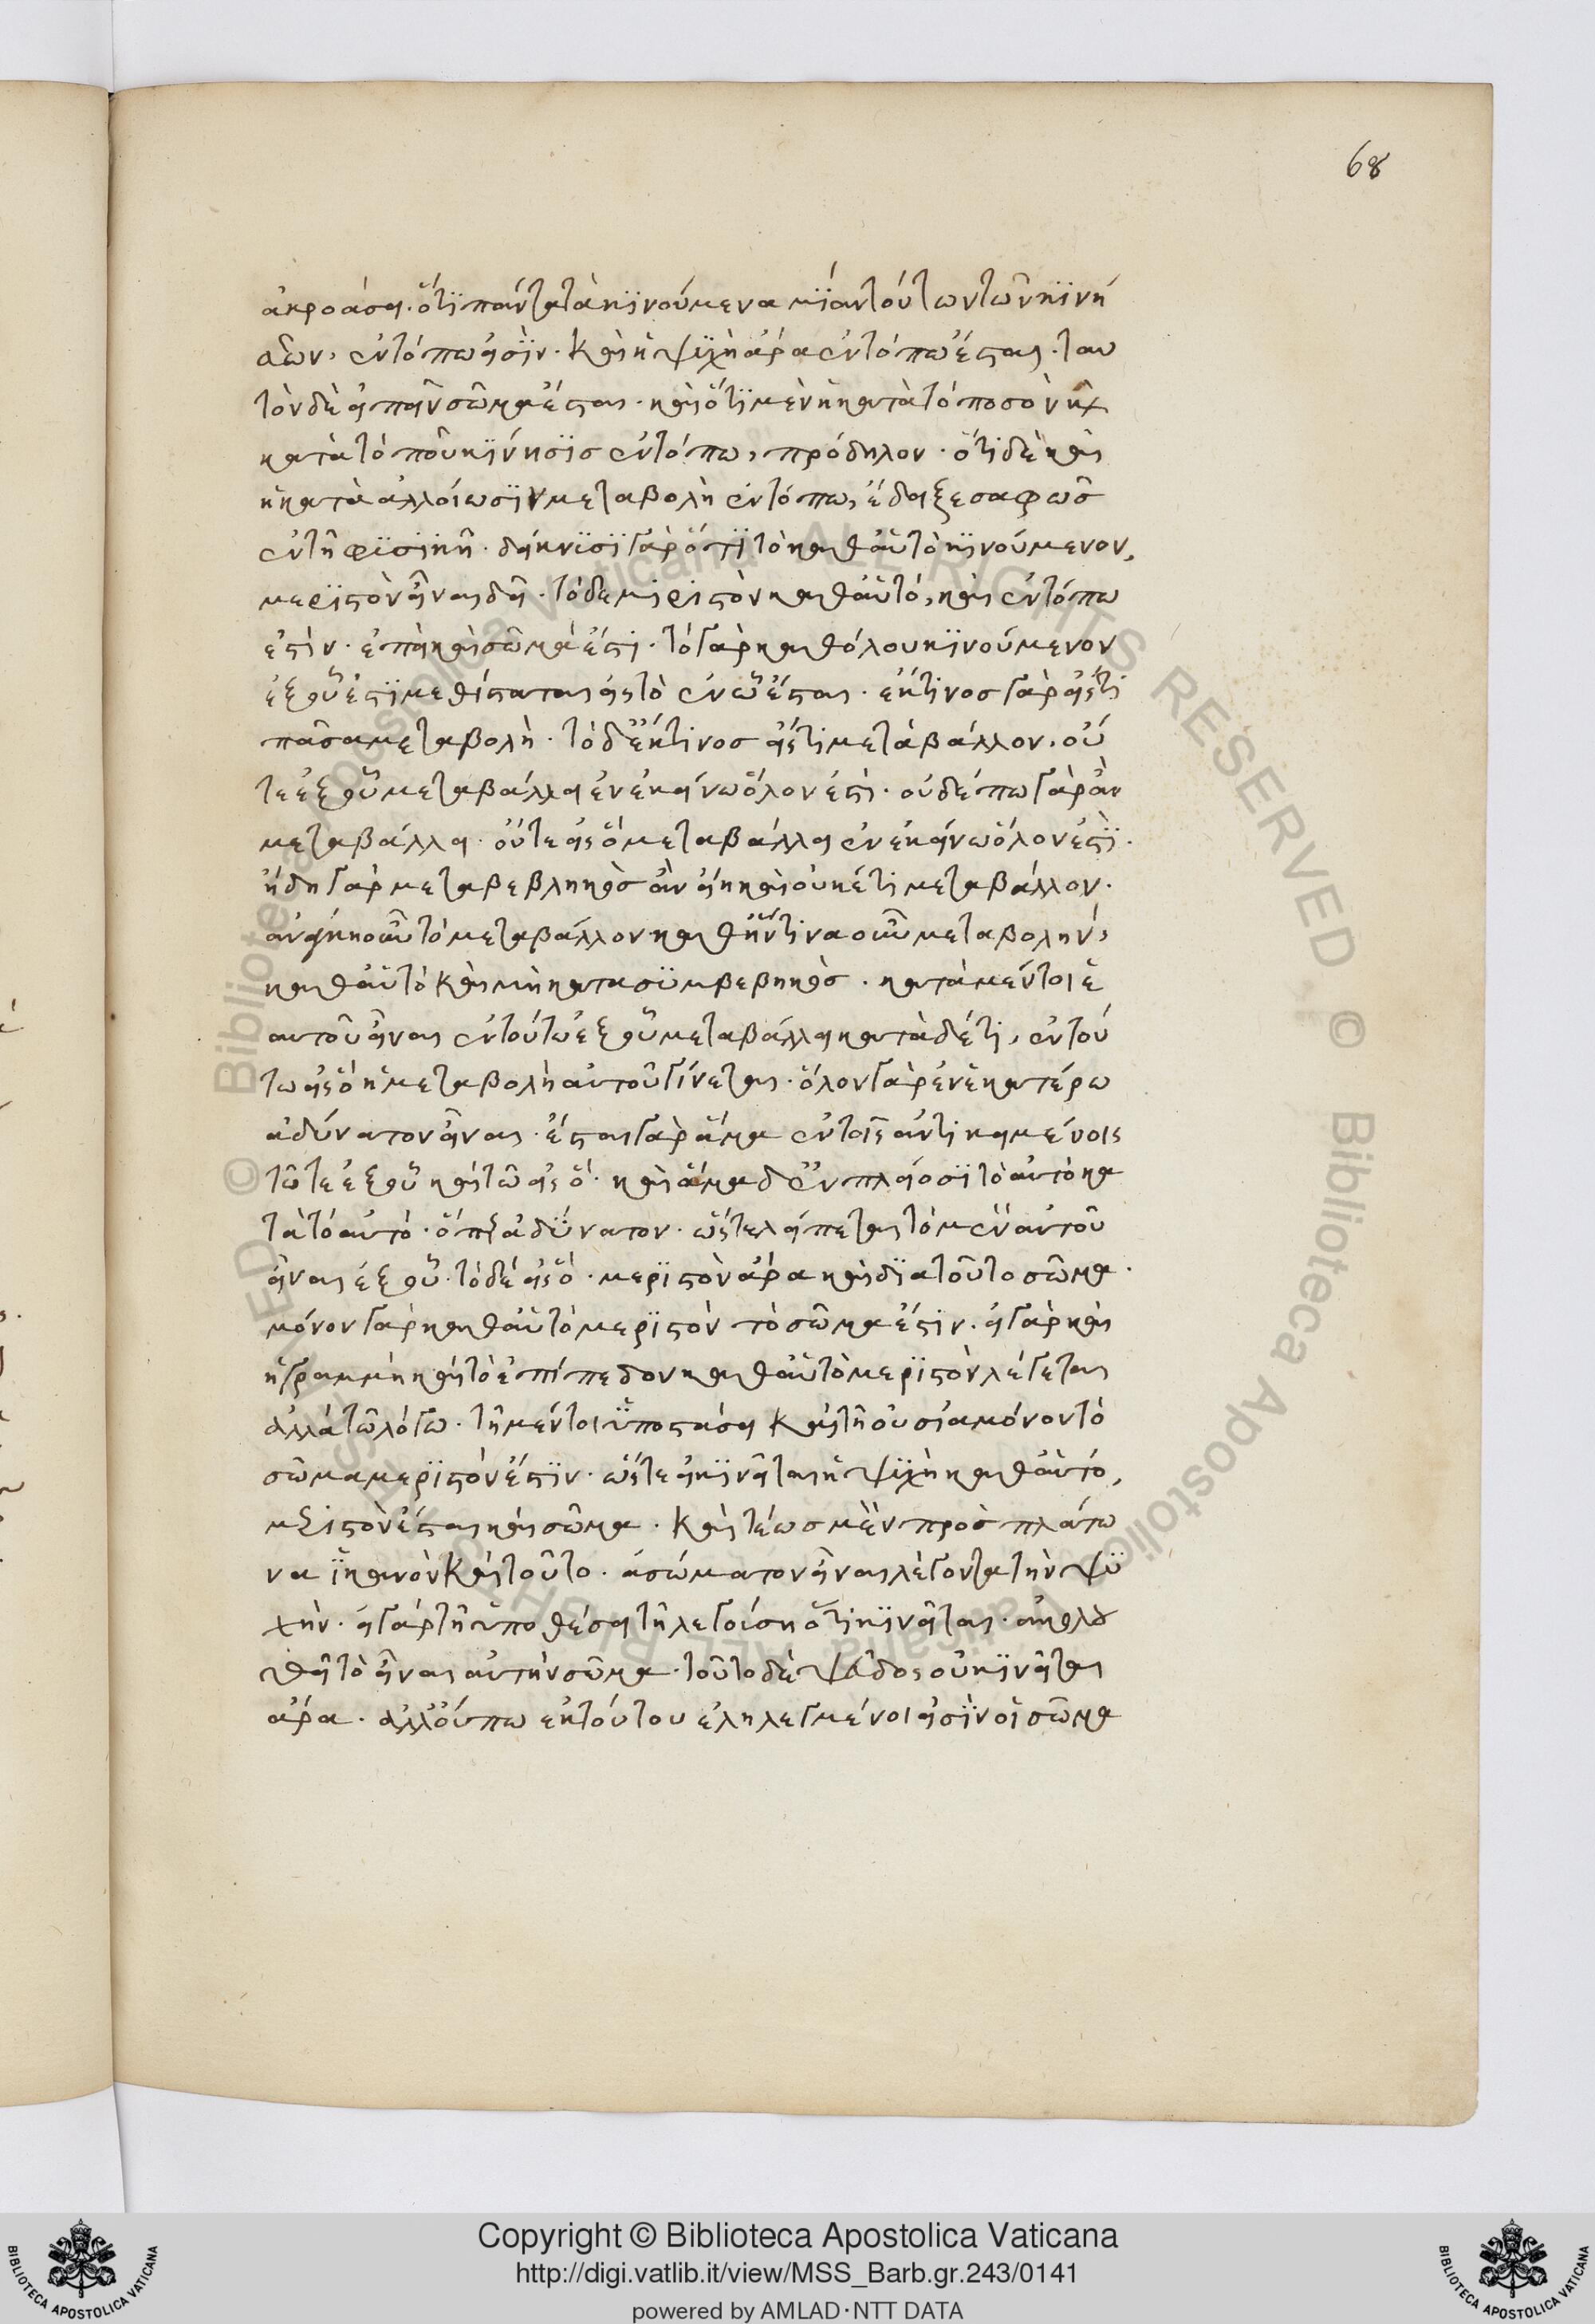 68
ἀκροάσει. ὅτι πάντα τὰ κινούμενα μίαν τούτων τῶν κινή
σεων, ἐν τόπω εἰσὶν. καὶ ἡ ψυχὴ ἄρα ἐν τόπω ἔσται. ταυ
τὸν δὲ εἰπεῖν σῶμα ἔσται. καὶ ὅτι μὲν ἡ κατὰ τὸ ποσὸν καὶ
κατὰ τὸ ποῦ κίνησις ἐν τόπω, πρόδηλον. ὅτι δὲ καὶ
ἡ κατὰ ἀλλοίωσιν μεταβολὴ ἐν τόπω, ἔδειξε σαφῶς
ἐν τῆ φυσικῆ. δείκνυσι γὰρ ὅτι τὸ καθ' αὑτὸ κινούμενον,
μεριστὸν εἶναι δεῖ. τὸ δὲ μεριστὸν καθ' αὑτό, καὶ ἐν τόπω
ἐστίν. ἐπεὶ καὶ σῶμά ἐστι. τὸ γὰρ καθόλου κινούμενον
ἐξ οὗ ἐστι μεθίσταται εἰς τὸ ἐν ὧ ἔσται. ἔκ τινος γὰρ εἴς τι
πᾶσα μεταβολή. τὸ δ' ἔκ τινος εἴς τι μεταβάλλον, οὔ
τε ἐξ οὗ μεταβάλλει ἐν ἐκείνω ὅλον ἐστὶ. οὐδέπω γὰρ ἂν
μεταβάλλει. οὔτε εἰς ὃ μεταβάλλει ἐν ἐκείνω ὅλον ἐστὶ.
ἤδη γὰρ μεταβεβληκὸς ἂν εἴη καὶ οὐκέτι μεταβάλλον.
ἀνάγκη οὖν τὸ μεταβάλλον καθ' ἥντινα οὖν μεταβολήν,
καθ' αὑτὸ καὶ μὴ κατασυμβεβηκὸς. κατὰ μέν τοι ἑ
αυτοῦ εἶναι ἐν τούτω ἐξ οὗ μεταβάλλει κατὰ δέ τι, ἐν τού
τω εἰς ὃ ἡ μεταβολὴ αὐτοῦ γίνεται. ὅλον γὰρ ἐν ἑκατέρω
ἀδύνατον εἶναι. ἔσται γὰρ ἅμα ἐν τοῖς ἀντικειμένοις
τῶ τε ἐξ οὗ καὶ τῶ εἰς ὅ. καὶ ἅμα δ' ἐν πλείοσι τὸ αὐτὸ κα
τὰ τὸ αὐτό. ὅπερ ἀδύνατον. ὥστε λείπεται τὸ μὲν αὐτοῦ
εἶναι ἐξ οὗ. τὸ δέ εἰς ὅ. μεριστὸν ἄρα καὶ διατοῦτο σῶμα.
μόνον γὰρ καθ' αὑτὸ μεριστὸν τὸ σῶμα ἐστιν. εἰ γὰρ καὶ
ἡ γραμμὴ καὶ τὸ ἐπίπεδον καθ' αὑτὸ μεριστὸν λέγεται
ἀλλὰ τῶ λόγω. τῆ μέν τοι ὑποστάσει καὶ τῆ οὐσία μόνον τὸ
σῶμα μεριστόν ἐστιν. ὥστε εἰ κινεῖται ἡ ψυχὴ καθ' αὑτό,
μεριστὸν ἔσται καὶ σῶμα. καὶ τέως μὲν πρὸς πλάτω
να ἱκανὸν καὶ τοῦτο. ἀσώματον εἶναι λέγοντα τὴν ψυ
χὴν. εἰ γὰρ τῆ ὑποθέσει τῆ λεγούση ὅτι κινεῖται. ἀκολου
θεῖ τὸ εἶναι αὐτὴν σῶμα. τοῦτο δὲ ψεῦδος οὐ κινεῖται
ἄρα. ἀλλ' οὔπω ἐκ τούτου ἐληλεγμένοι εἰσὶν οἱ σῶμα
Copyright © Biblioteca Apostolica Vaticana
http://digi.vatlib.it/view/MSS_Barb.gr.243/0141
powered by AMLAD·NTT DATA